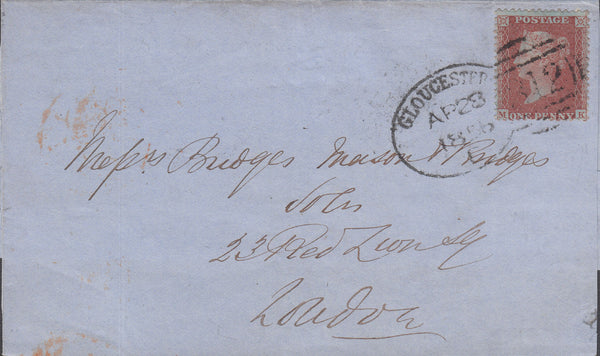 POSTAGE
M ONE PENNY K
GLOUCESTER
AP 28
1856
312
Messrs Bridges Mason & Bridges
Solrs
23 Red Lion Sq
London